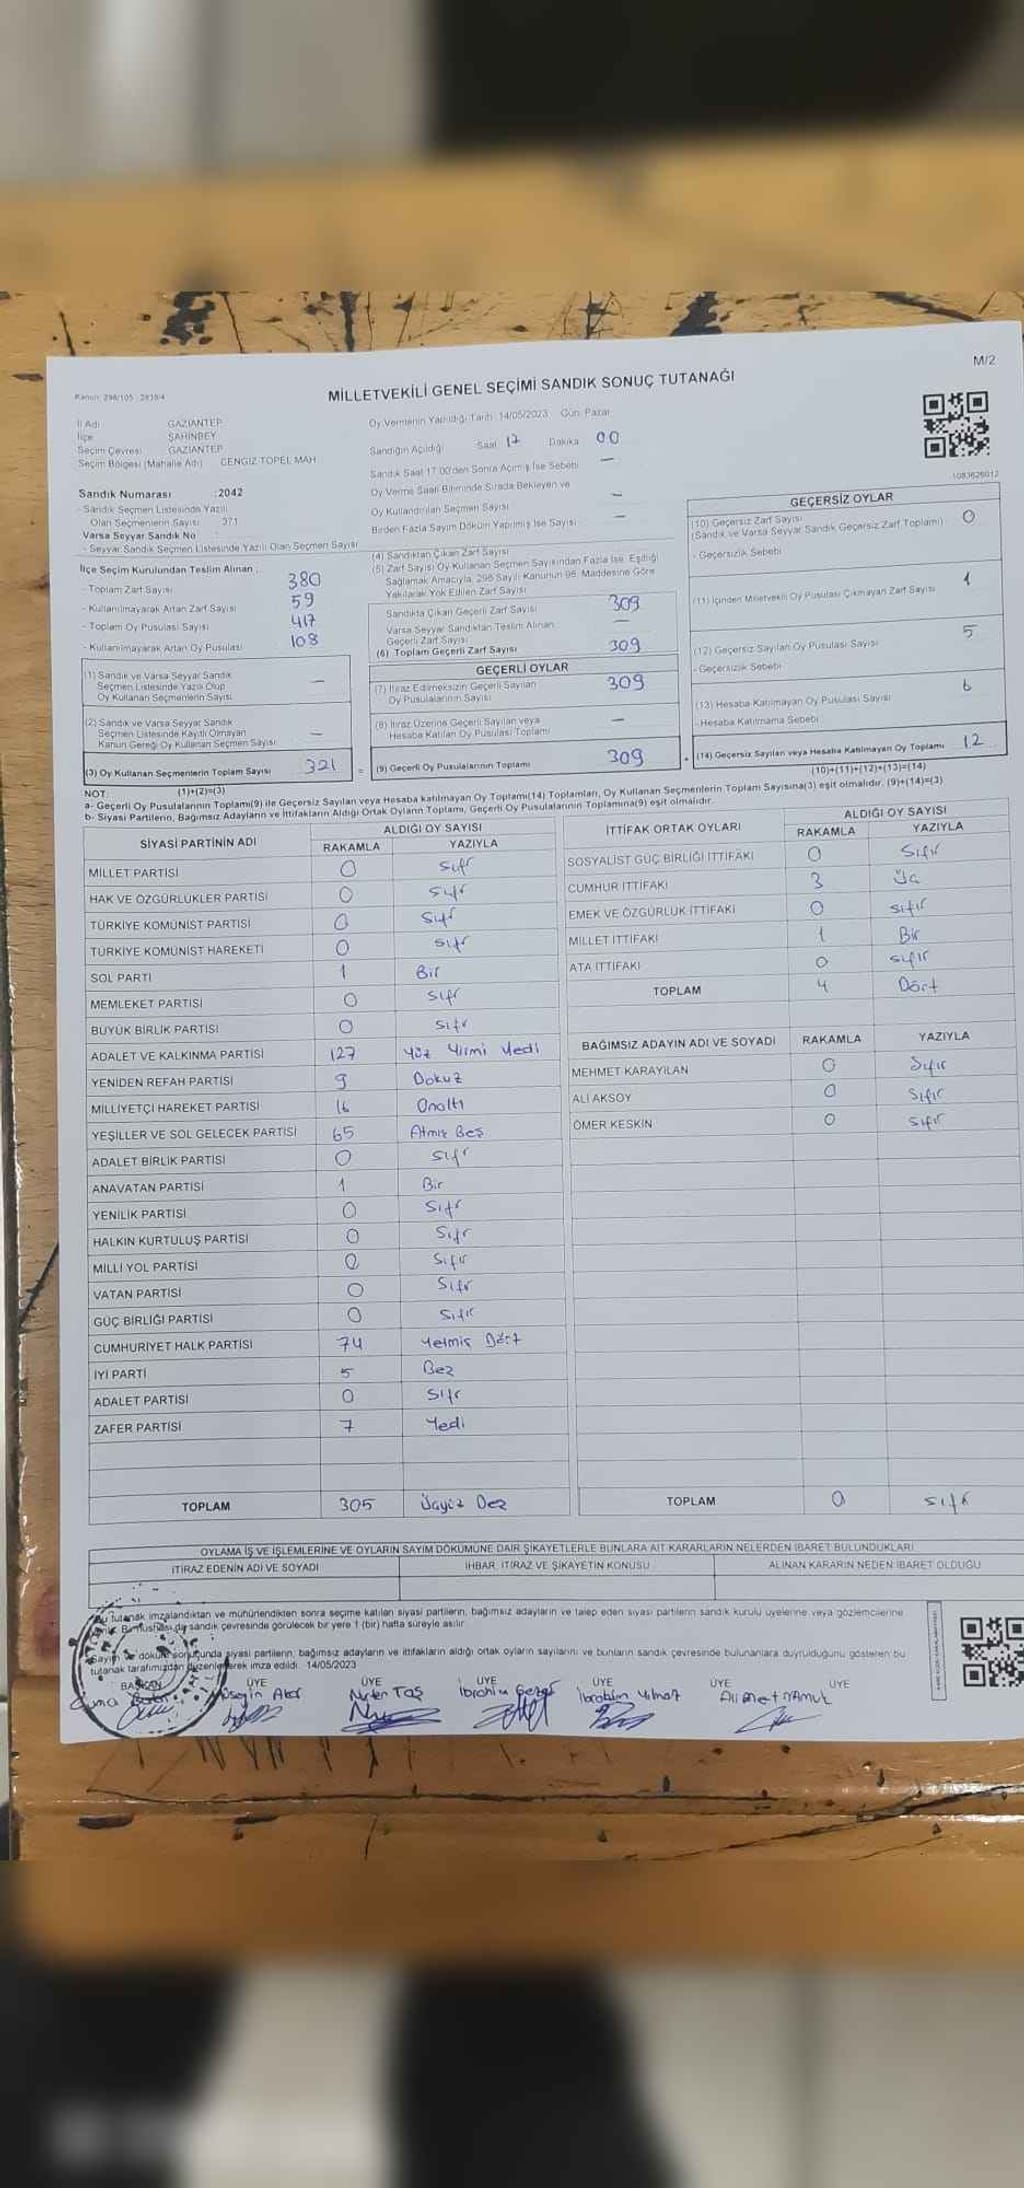 M/2
Kanun: 298/105 - 2839/4
MİLLETVEKİLİ GENEL SEÇİMİ SANDIK SONUÇ TUTANAĞI
İl Adı GAZİANTEP
İlçe ŞAHİNBEY
Seçim Çevresi GAZİANTEP
Seçim Bölgesi (Mahalle Adı) CENGİZ TOPEL MAH
Sandık Numarası :2042
- Sandık Seçmen Listesinde Yazılı
Olan Seçmenlerin Sayısı : 371
Varsa Seyyar Sandık No
- Seyyar Sandık Seçmen Listesinde Yazılı Olan Seçmen Sayısı
İlçe Seçim Kurulundan Teslim Alınan :
- Toplam Zarf Sayısı 380
- Kullanılmayarak Artan Zarf Sayısı 59
- Toplam Oy Pusulası Sayısı 417
- Kullanılmayarak Artan Oy Pusulası 108
(1) Sandık ve Varsa Seyyar Sandık
Seçmen Listesinde Yazılı Olup
Oy Kullanan Seçmenlerin Sayısı —
(2) Sandık ve Varsa Seyyar Sandık
Seçmen Listesinde Kayıtlı Olmayan
Kanun Gereği Oy Kullanan Seçmen Sayısı —
(3) Oy Kullanan Seçmenlerin Toplam Sayısı 321
Oy Vermenin Yapıldığı Tarih: 14/05/2023 Gün: Pazar
Sandığın Açıldığı Saat 17 Dakika 00
Sandık Saat 17:00'den Sonra Açılmış İse Sebebi —
Oy Verme Saati Bitiminde Sırada Bekleyen ve
Oy Kullandırılan Seçmen Sayısı —
Birden Fazla Sayım Döküm Yapılmış İse Sayısı —
(4) Sandıktan Çıkan Zarf Sayısı
(5) Zarf Sayısı Oy Kullanan Seçmen Sayısından Fazla İse, Eşitliği
Sağlamak Amacıyla, 298 Sayılı Kanunun 98. Maddesine Göre
Yakılarak Yok Edilen Zarf Sayısı
Sandıkta Çıkan Geçerli Zarf Sayısı 309
Varsa Seyyar Sandıktan Teslim Alınan
Geçerli Zarf Sayısı —
(6) Toplam Geçerli Zarf Sayısı 309
GEÇERLİ OYLAR
(7) İtiraz Edilmeksizin Geçerli Sayılan
Oy Pusulalarının Sayısı 309
(8) İtiraz Üzerine Geçerli Sayılan veya
Hesaba Katılan Oy Pusulası Toplamı —
= (9) Geçerli Oy Pusulalarının Toplamı 309
1083626012
GEÇERSİZ OYLAR
(10) Geçersiz Zarf Sayısı 0
(Sandık ve Varsa Seyyar Sandık Geçersiz Zarf Toplamı)
- Geçersizlik Sebebi
(11) İçinden Milletvekili Oy Pusulası Çıkmayan Zarf Sayısı 1
(12) Geçersiz Sayılan Oy Pusulası Sayısı 5
- Geçersizlik Sebebi
(13) Hesaba Katılmayan Oy Pusulası Sayısı 6
- Hesaba Katılmama Sebebi
+ (14) Geçersiz Sayılan veya Hesaba Katılmayan Oy Toplamı 12
NOT: (1)+(2)=(3) (10)+(11)+(12)+(13)=(14)
a- Geçerli Oy Pusulalarının Toplamı(9) ile Geçersiz Sayılan veya Hesaba katılmayan Oy Toplamı(14) Toplamları, Oy Kullanan Seçmenlerin Toplam Sayısına(3) eşit olmalıdır. (9)+(14)=(3)
b- Siyasi Partilerin, Bağımsız Adayların ve İttifakların Aldığı Ortak Oyların Toplamı, Geçerli Oy Pusulalarının Toplamına(9) eşit olmalıdır.
SİYASİ PARTİNİN ADI ALDIĞI OY SAYISI
RAKAMLA YAZIYLA
MİLLET PARTİSİ 0 Sıfr
HAK VE ÖZGÜRLÜKLER PARTİSİ 0 Sıfr
TÜRKİYE KOMÜNİST PARTİSİ 0 Sıfr
TÜRKİYE KOMÜNİST HAREKETİ 0 Sıfr
SOL PARTİ 1 Bir
MEMLEKET PARTİSİ 0 Sıfr
BÜYÜK BİRLİK PARTİSİ 0 Sıfr
ADALET VE KALKINMA PARTİSİ 127 Yüz Yirmi Yedi
YENİDEN REFAH PARTİSİ 9 Dokuz
MİLLİYETÇİ HAREKET PARTİSİ 16 Onaltı
YEŞİLLER VE SOL GELECEK PARTİSİ 65 Atmış Beş
ADALET BİRLİK PARTİSİ 0 Sıfr
ANAVATAN PARTİSİ 1 Bir
YENİLİK PARTİSİ 0 Sıfr
HALKIN KURTULUŞ PARTİSİ 0 Sıfr
MİLLİ YOL PARTİSİ 0 Sıfır
VATAN PARTİSİ 0 Sıfr
GÜÇ BİRLİĞİ PARTİSİ 0 Sıfır
CUMHURİYET HALK PARTİSİ 74 Yetmiş Dört
İYİ PARTİ 5 Beş
ADALET PARTİSİ 0 Sıfr
ZAFER PARTİSİ 7 Yedi
TOPLAM 305 Üçyüz Beş
İTTİFAK ORTAK OYLARI ALDIĞI OY SAYISI
RAKAMLA YAZIYLA
SOSYALİST GÜÇ BİRLİĞİ İTTİFAKI 0 Sıfır
CUMHUR İTTİFAKI 3 Üç
EMEK VE ÖZGÜRLÜK İTTİFAKI 0 Sıfır
MİLLET İTTİFAKI 1 Bir
ATA İTTİFAKI 0 Sıfır
TOPLAM 4 Dört
BAĞIMSIZ ADAYIN ADI VE SOYADI RAKAMLA YAZIYLA
MEHMET KARAYILAN 0 Sıfır
ALİ AKSOY 0 Sıfır
ÖMER KESKİN 0 Sıfır
TOPLAM 0 Sıfır
OYLAMA İŞ VE İŞLEMLERİNE VE OYLARIN SAYIM DÖKÜMÜNE DAİR ŞİKAYETLERLE BUNLARA AİT KARARLARIN NELERDEN İBARET BULUNDUKLARI
İTİRAZ EDENİN ADI VE SOYADI İHBAR, İTİRAZ VE ŞİKAYETİN KONUSU ALINAN KARARIN NEDEN İBARET OLDUĞU
Bu tutanak imzalandıktan ve mühürlendikten sonra seçime katılan siyasi partilerin, bağımsız adayların ve talep eden siyasi partilerin sandık kurulu üyelerine veya gözlemcilerine
Bir nüshası da sandık çevresinde görülecek bir yere 1 (bir) hafta süreyle asılır
Sayım ve döküm sonucunda siyasi partilerin, bağımsız adayların ve ittifakların aldığı ortak oyların sayılarını ve bunların sandık çevresinde bulunanlara duyrulduğunu gösteren bu
tutanak tarafımızdan düzenlenerek imza edildi. 14/05/2023
BAŞKAN ÜYE ÜYE ÜYE ÜYE ÜYE ÜYE
Nurten Taş İbrahim İbrahim Yılmaz